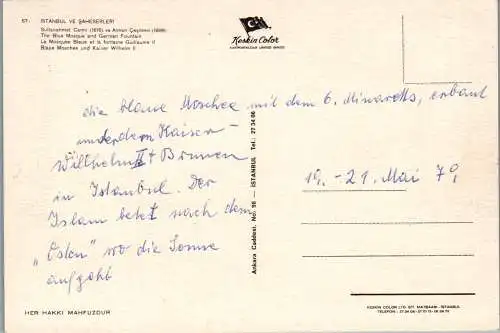 57. ISTANBUL VE ŞAHESERLERİ
Sultanahmet Camii (1616) ve Alman Çeşmesi (1898)
The Blue Mosque and German Fountain
La Mosquée Bleue et la fontaine Guillaume II
Blaue Moschee und Kaiser Wilhelm II
Keskin Color
die blaue Moschee mit dem 6. Minaretts, erbaut
Kaiser-
Willhelm II + Brunnen
in Istanbul. Der
Islam betet nach dem
„Osten" wo die Sonne
aufgeht
19.-21. Mai 79
Ankara Caddesi. No. 98 — İSTANBUL Tel.: 27 34 06
HER HAKKI MAHFUZDUR
KESKİN COLOR LTD. ŞTİ. MATBAASI - İSTANBUL